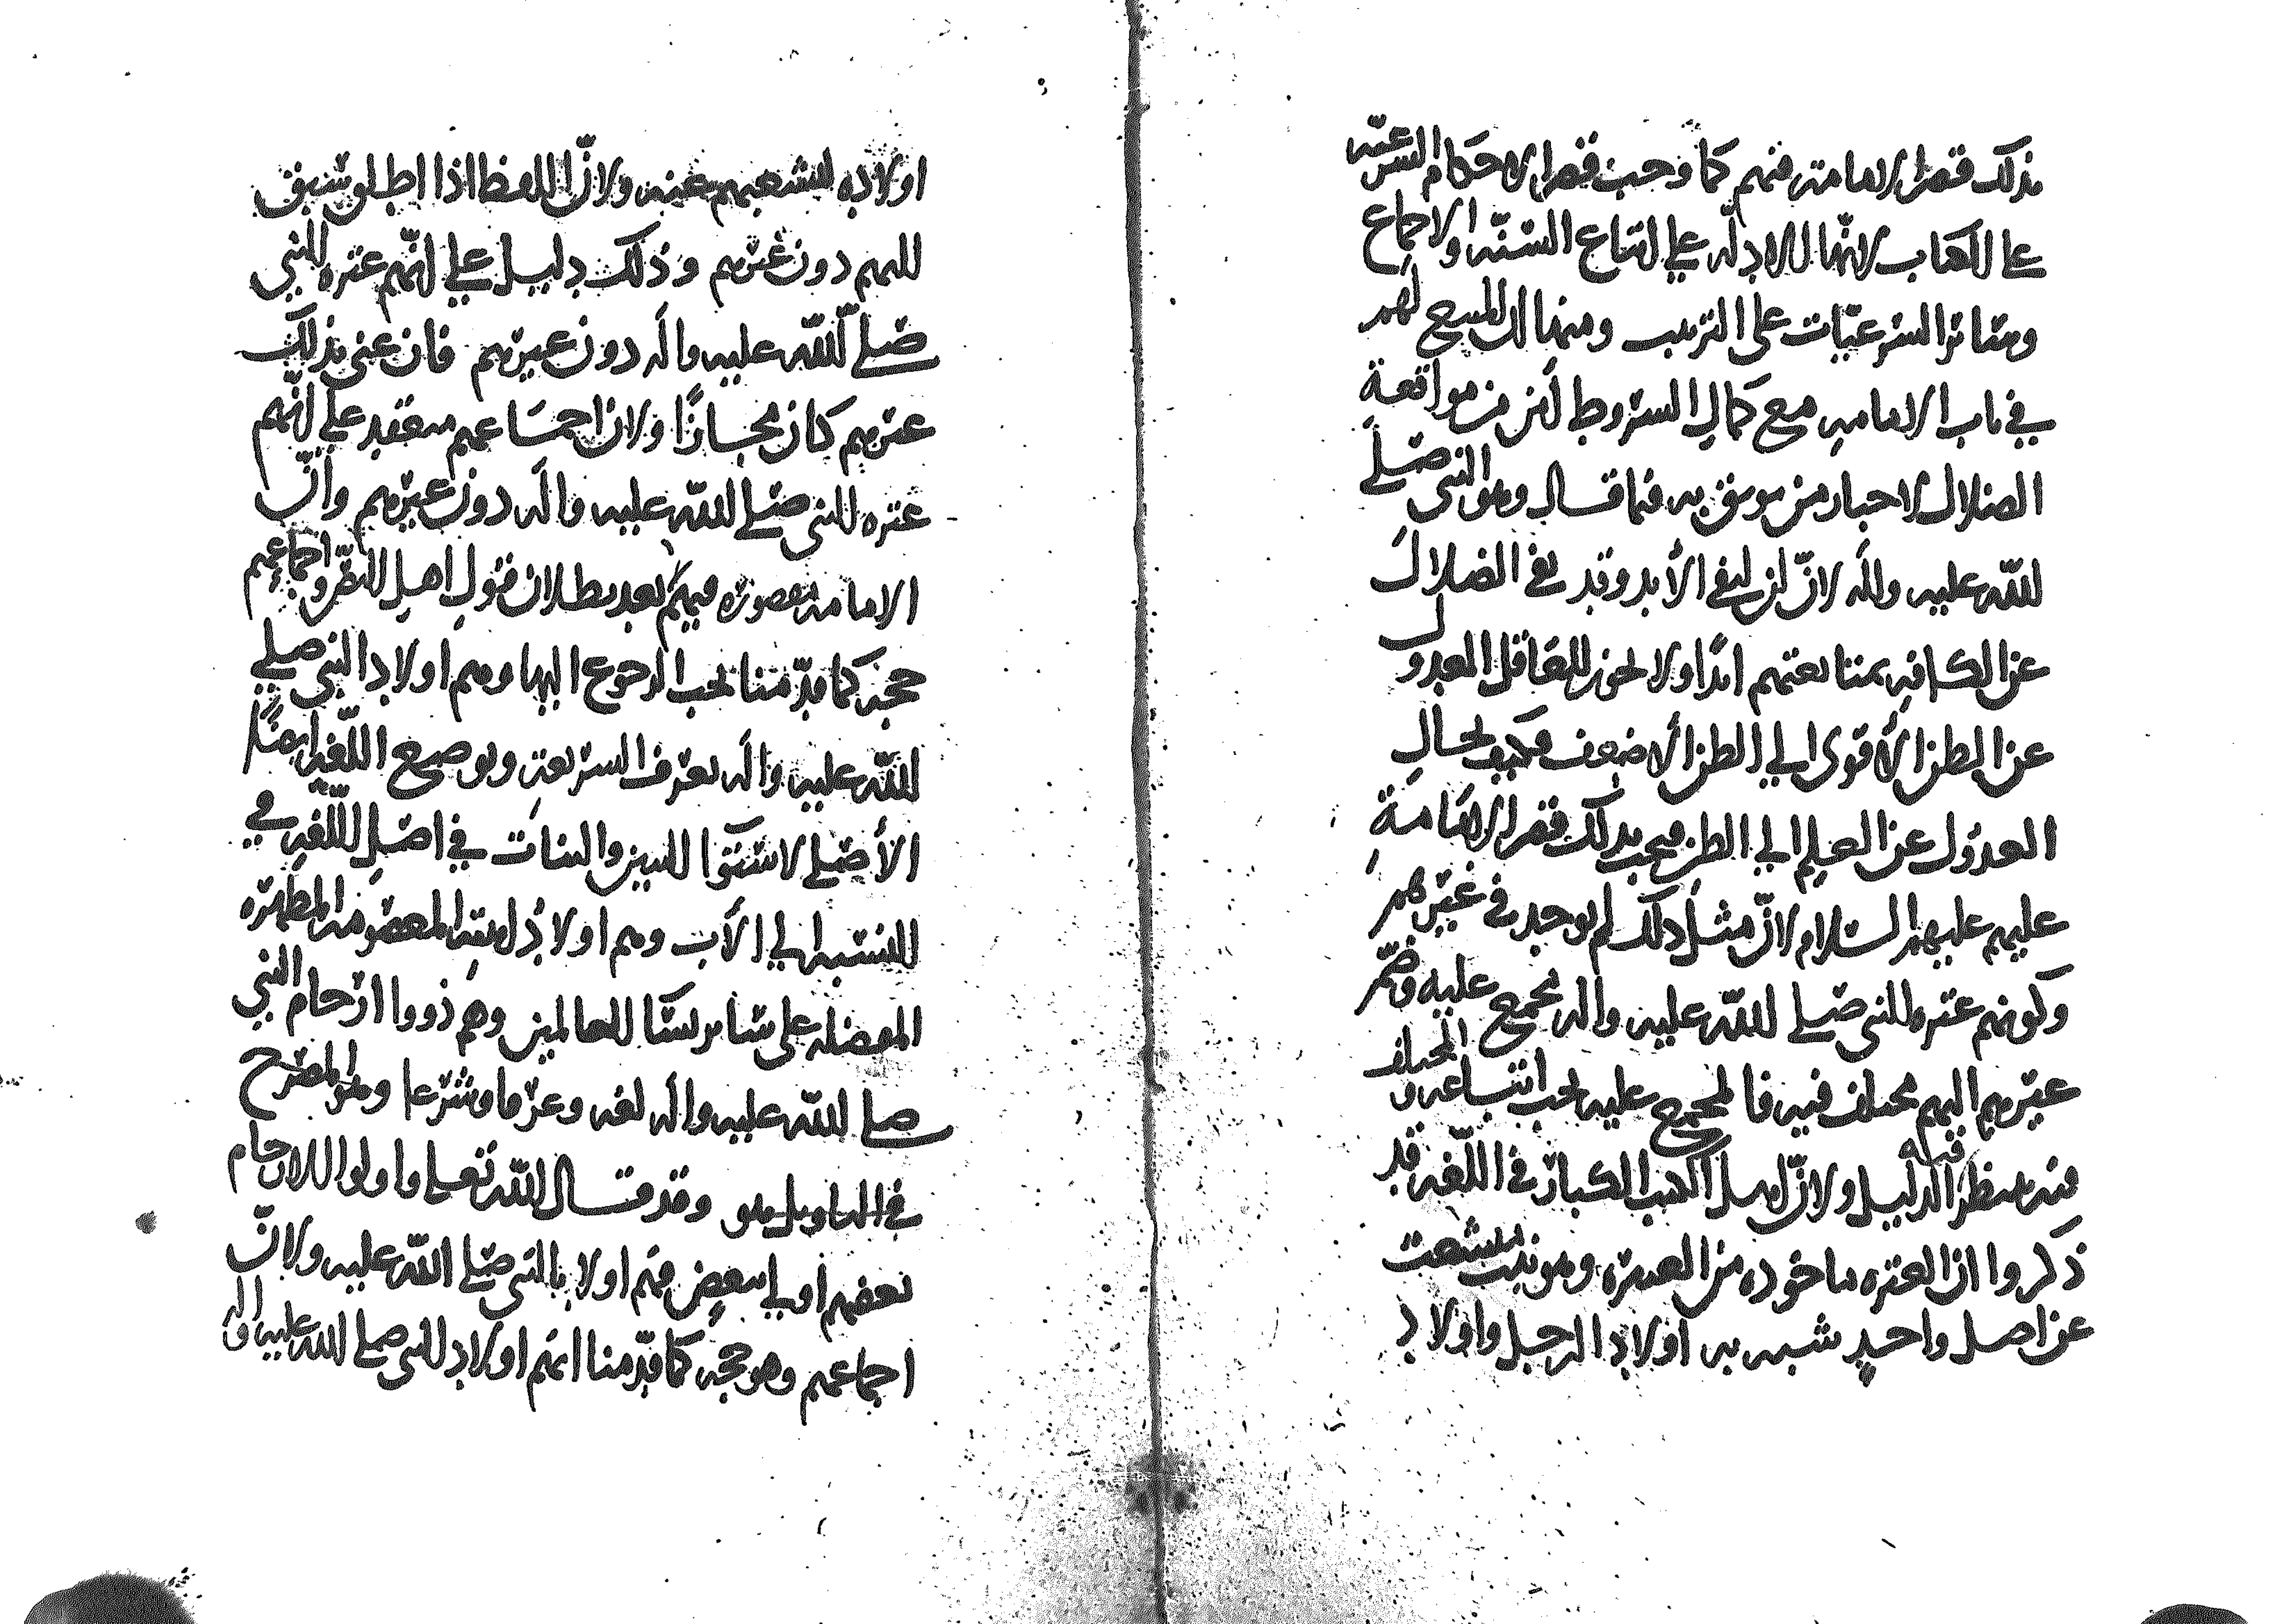 بذلك قصر الامامة فيهم كما وجب قصر الاحكام الشرعية
على الكتاب لانهما الادلة على اتباع السنة والاجماع
وسائر الشرعيات على الترتيب ومنها ان المتبع لهم
في باب الامامة مع كمال الشروط آمن من مواقعة
الضلال لاخبار من يوثق به فيما قال وهو النبي صلى
الله عليه وآله لانّ لن لنفي الأبد وقد نفى الضلال
عن الكافة بمتابعتهم ابدًا ولا يجوز للعاقل العدول
عن الظن الأقوى الى الظن الأضعف فكيف بحال
العدول عن العلم الى الظن فيجب بذلك قصر الامامة
عليهم عليهم السلام لانّ مثل ذلك لم يوجد في غيرهم
وكونهم عترة النبي صلى الله عليه وآله مجمع عليه وضمّ
غيرهم اليهم مختلف فيه فالمجمع عليه يجب اتباعه والمختلف
فيه منتظر الدليل ولانّ اهل الكتب الكبار في اللغة قد
ذكروا ان العترة ماخوذة من العتيرة وهو نبت متشعب
عن اصل واحدٍ شبه به اولاد الرجل واولاد
اولاده لتشعبهم عنه ولانّ اللفظ اذا اطلق سبق
اليهم دون غيرهم وذلك دليل على انّهم عترة النبي
صلى الله عليه وآله دون غيرهم فان عنى بذلك
غيرهم كان مجازًا ولان اجماعهم منعقد على انّهم
عترة النبي صلى الله عليه وآله دون غيرهم وانّ
الامامة مقصورة فيهم بعد بطلان قول اهل النصّ واجماعهم
حجة كما قدّمنا يجب الرجوع اليها وهم اولاد النبي صلى
الله عليه وآله بعرف الشريعة وبوضع اللغة ايضًا
الأصلي لاستوا البنين والبنات في اصل اللغة في
النسبة الى الأب وهم اولاد ابنته المعصومة المطهرة
المفضلة على سائر نسآ العالمين وهم ذووا ارحام النبي
صلى الله عليه وآله لغة وعرفا وشرعا وهو المصرح
في التاويل وقد قال الله تعالى واولوا الارحام
بعضهم أولى ببعض فهم اولا بالنبي صلى الله عليه ولانّ
اجماعهم وهو حجة كما قدّمنا انهم اولاد النبي صلى الله عليه وآله